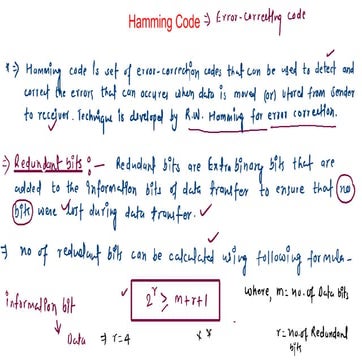 Hamming Code ⇒ Error-correcting code
*⇒ Hamming code is set of error-correction codes that can be used to detect and
correct the errors that can occures when data is moved (or) stored from Sender
to receiver. Technique is developed by R.W. Hamming for error correction.
⇒ Redundant bits :- Redundant bits are Extra binary bits that are
added to the information bits of data transfer to ensure that no
bits were lost during data transfer.
⇒ no of redundant bits can be calculated using following formula-
2^r ≥ m+r+1
where, m = no. of Data bits
r = no. of Redundant
bits
information bit
Data ⇒ r=4